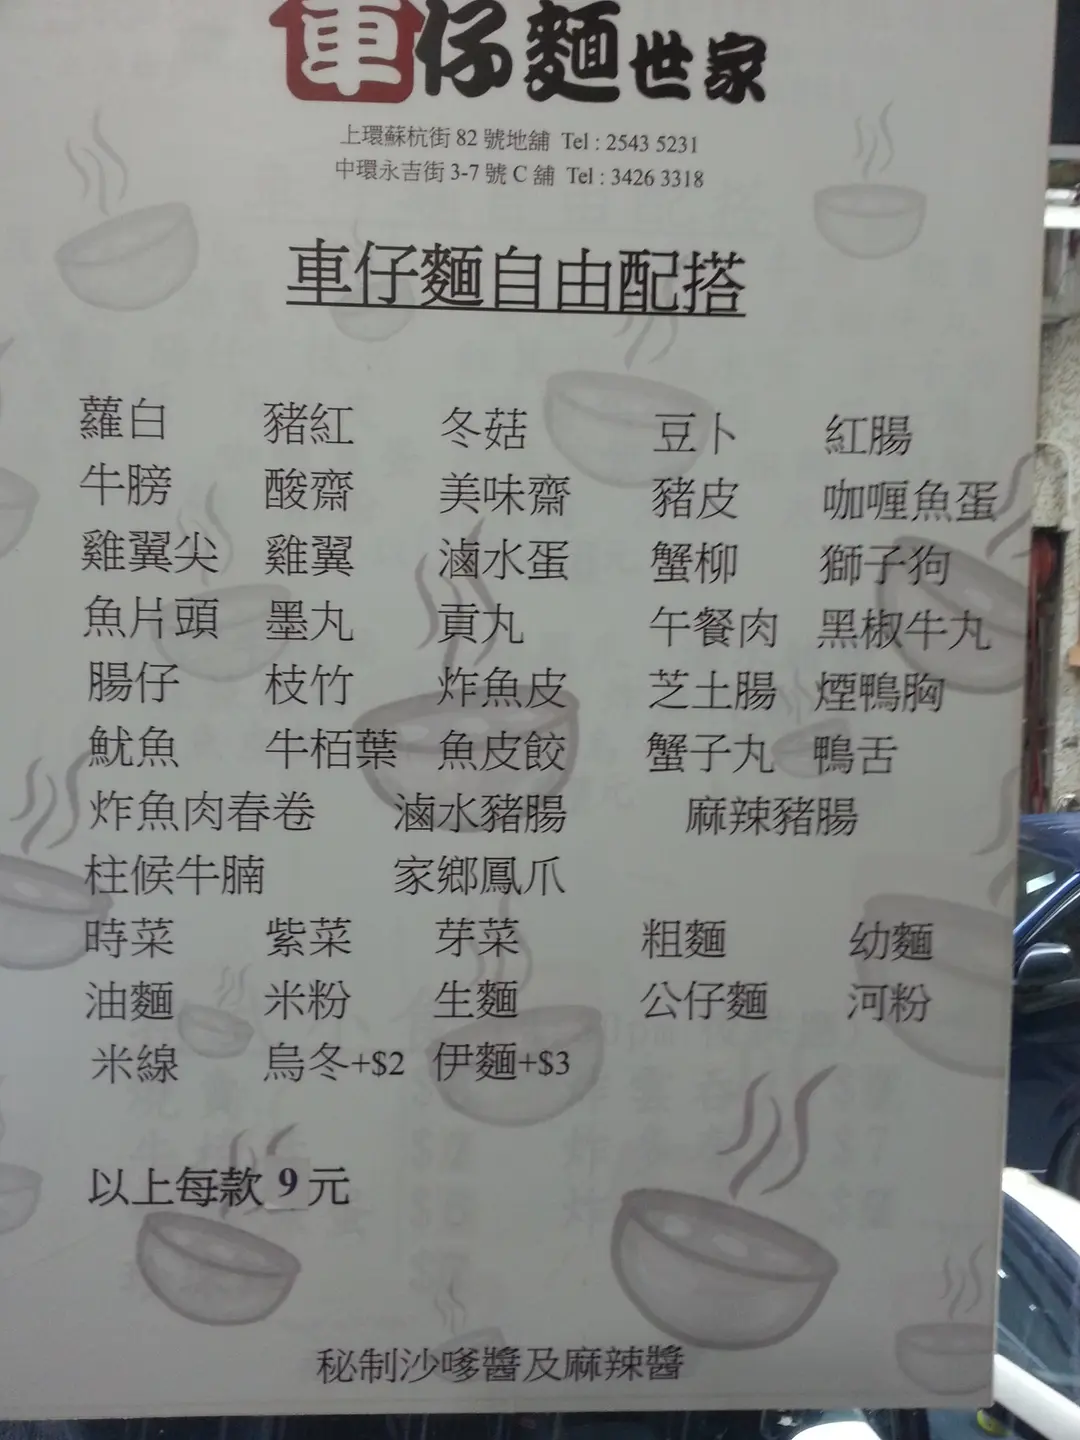 車仔麵世家
上環蘇杭街 82 號地舖 Tel : 2543 5231
中環永吉街 3-7 號 C 舖 Tel : 3426 3318
車仔麵自由配搭
蘿白 豬紅 冬菇 豆卜 紅腸
牛膀 酸齋 美味齋 豬皮 咖喱魚蛋
雞翼尖 雞翼 滷水蛋 蟹柳 獅子狗
魚片頭 墨丸 貢丸 午餐肉 黑椒牛丸
腸仔 枝竹 炸魚皮 芝士腸 煙鴨胸
魷魚 牛栢葉 魚皮餃 蟹子丸 鴨舌
炸魚肉春卷 滷水豬腸 麻辣豬腸
柱候牛腩 家鄉鳳爪
時菜 紫菜 芽菜 粗麵 幼麵
油麵 米粉 生麵 公仔麵 河粉
米線 烏冬+$2 伊麵+$3
以上每款 9 元
秘制沙嗲醬及麻辣醬